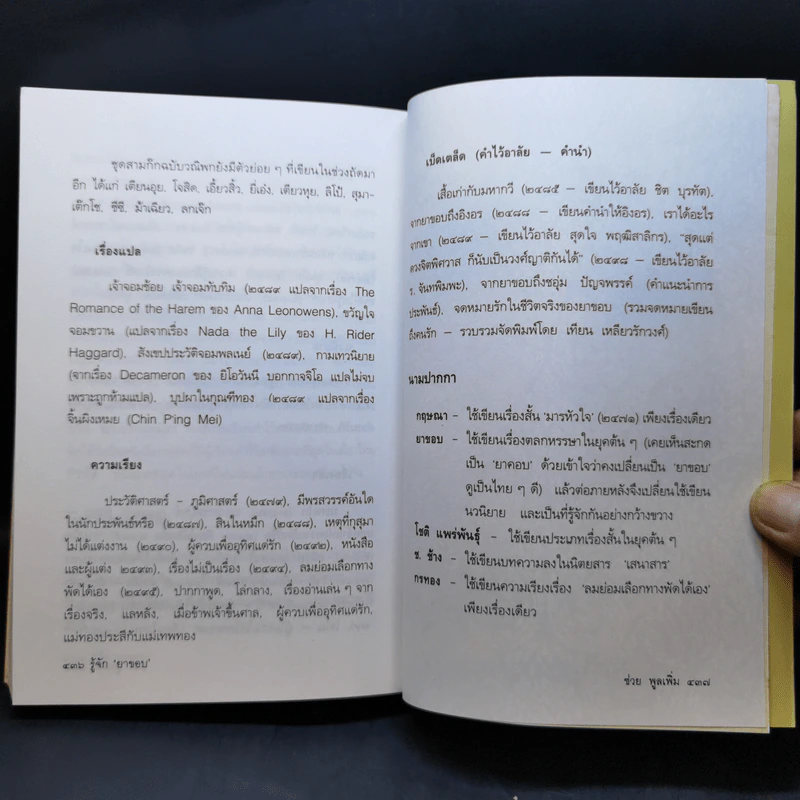 ชุดสามก๊กฉบับวณิพกยังมีตัวย่อย ๆ ที่เขียนในช่วงถัดมา
อีก ได้แก่ เตียนอุย, โจสิด, เอี้ยวสิ้ว, ยี่เอ๋ง, เตียวหุย, ลิโป้, สุมา-
เต๊กโช, ชีซี, ม้าเฉียว, ลกเจ๊ก
เรื่องแปล
เจ้าจอมช้อย เจ้าจอมทับทิม (๒๔๘๙ แปลจากเรื่อง The
Romance of the Harem ของ Anna Leonowens), ขวัญใจ
จอมขวาน (แปลจากเรื่อง Nada the Lily ของ H. Rider
Haggard), สังเขปประวัติจอมพลเนย์ (๒๔๘๙), กามเทวนิยาย
(จากเรื่อง Decameron ของ ยิโอวันนี บอกกาจจิโอ แปลไม่จบ
เพราะถูกห้ามแปล), บุปผาในกุณฑีทอง (๒๔๘๙ แปลจากเรื่อง
จิ้นผิงเหมย (Chin Ping Mei)
ความเรียง
ประวัติศาสตร์ - ภูมิศาสตร์ (๒๔๗๙), มีพรสวรรค์อันใด
ในนักประพันธ์หรือ (๒๔๘๗), สินในหมึก (๒๔๘๘), เหตุที่กุสุมา
ไม่ได้แต่งงาน (๒๔๙๐), ผู้ควบเพื่ออุทิศแด่รัก (๒๔๙๒), หนังสือ
และผู้แต่ง (๒๔๙๓), เรื่องไม่เป็นเรื่อง (๒๔๙๔), ลมย่อมเลือกทาง
พัดได้เอง (๒๔๙๕), ปากกาพูด, โล่กลาง, เรื่องอ่านเล่น ๆ จาก
เรื่องจริง, แลหลัง, เมื่อข้าพเจ้าขึ้นศาล, ผู้ควบเพื่ออุทิศแด่รัก,
แม่ทองประสีกับแม่เทพทอง
๔๓๖ รู้จัก 'ยาขอบ'
เบ็ดเตล็ด (คำไว้อาลัย — คำนำ)
เสื้อเก่ากับมหากวี (๒๔๘๕ — เขียนไว้อาลัย ชิต บุรทัต),
จากยาขอบถึงอิงอร (๒๔๘๘ — เขียนคำนำให้อิงอร), เราได้อะไร
จากเขา (๒๔๘๙ — เขียนไว้อาลัย สุดใจ พฤฒิสาลิกร), "สุดแต่
ดวงจิตพิศวาส ก็นับเป็นวงศ์ญาติกันได้" (๒๔๙๘ — เขียนไว้อาลัย
ร. จันทพิมพะ), จากยาขอบถึงชอุ่ม ปัญจพรรค์ (คำแนะนำการ
ประพันธ์), จดหมายรักในชีวิตจริงของยาขอบ (รวมจดหมายเขียน
ถึงคนรัก — รวบรวมจัดพิมพ์โดย เทียน เหลียวรักวงศ์)
นามปากกา
กฤษณา - ใช้เขียนเรื่องสั้น 'มารหัวใจ' (๒๔๗๑) เพียงเรื่องเดียว
ยาขอบ - ใช้เขียนเรื่องตลกหรรษาในยุคต้น ๆ (เคยเห็นสะกด
เป็น 'ยาคอบ' ด้วยเข้าใจว่าคงเปลี่ยนเป็น 'ยาขอบ'
ดูเป็นไทย ๆ ดี) แล้วต่อภายหลังจึงเปลี่ยนใช้เขียน
นวนิยาย และเป็นที่รู้จักกันอย่างกว้างขวาง
โชติ แพร่พันธุ์ - ใช้เขียนประเภทเรื่องสั้นในยุคต้น ๆ
ช. ช้าง - ใช้เขียนบทความลงในนิตยสาร 'เสนาสาร'
กรทอง - ใช้เขียนความเรียงเรื่อง 'ลมย่อมเลือกทางพัดได้เอง'
เพียงเรื่องเดียว
ช่วย พูลเพิ่ม ๔๓๗